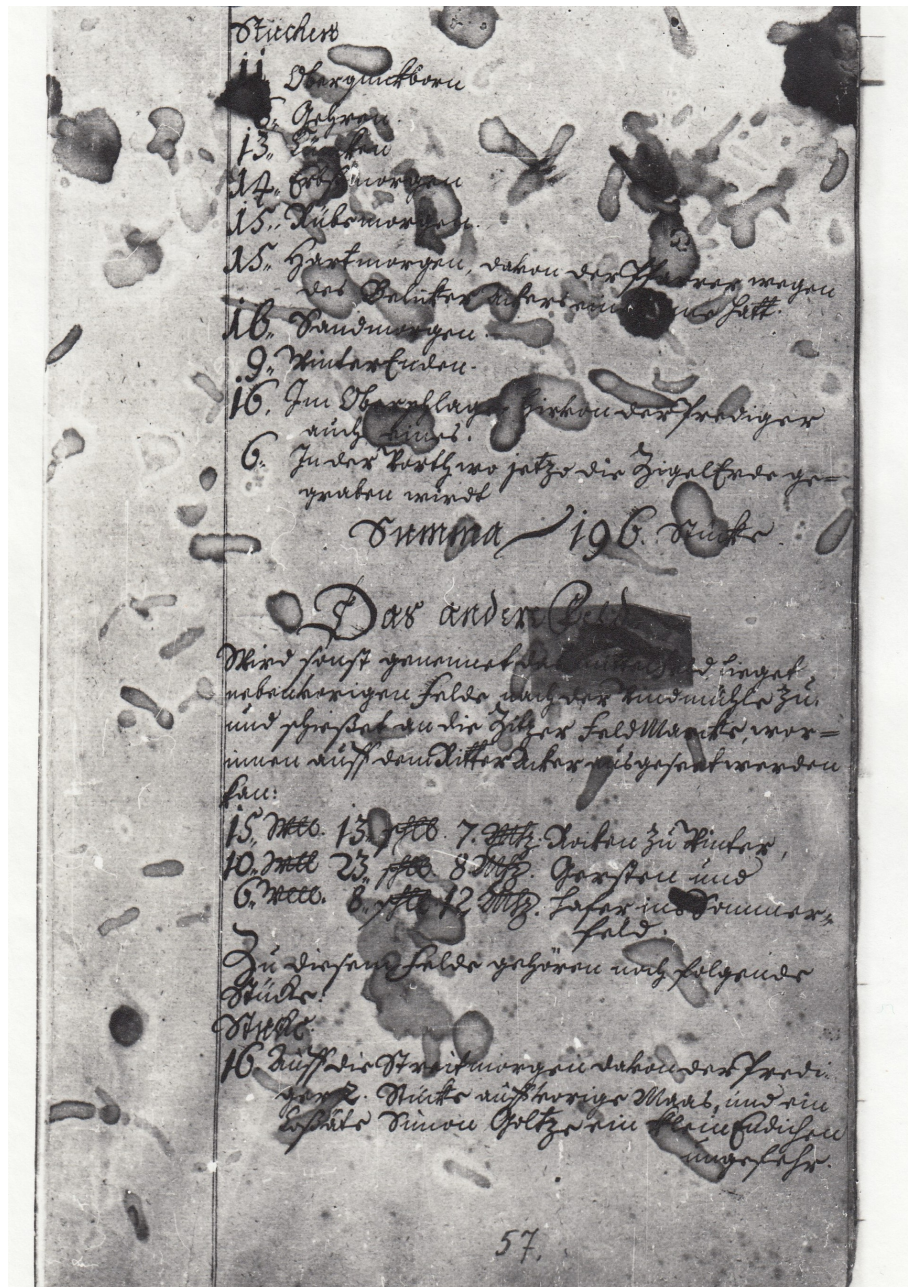 Stücken
11. Oberquickborn
6. Gehren.
13.
14. Erbßmorgen
15. Rübsmorgen.
15. Hartmorgen, davon der Pfarrer wegen
des ackers ein hatt.
16. Sandmorgen.
9. WinterEnden.
16. Im hirvon der Prediger
auch eines.
6. In der Worth, wo jetzo die ZigelErde ge=
graben wirdt
Summa 196. Stücke
Das andere Feld
Wird sonst genennet das mittelfeld lieget
neben vorigen Felde nach der Windmühle zu.
und scheßet an die Zitzer FeldMarcke, wor=
innen auff dem Ritter Acker ausgeseet werden
kan:
15. 13. 7. Rocken zu Winter,
10. 23. 8 Gersten und
6. 8. 12 Hafer ins Sommer=
feld.
Zu diesem Felde gehören noch folgende
Stücke:
Stücke.
16. Auff die Streitmorgen davon der Predi
ger 2. Stücke auff vorige Maas, und ein
Coßäte Simon Göltze ein klein Endichen
ungefehr.
57.